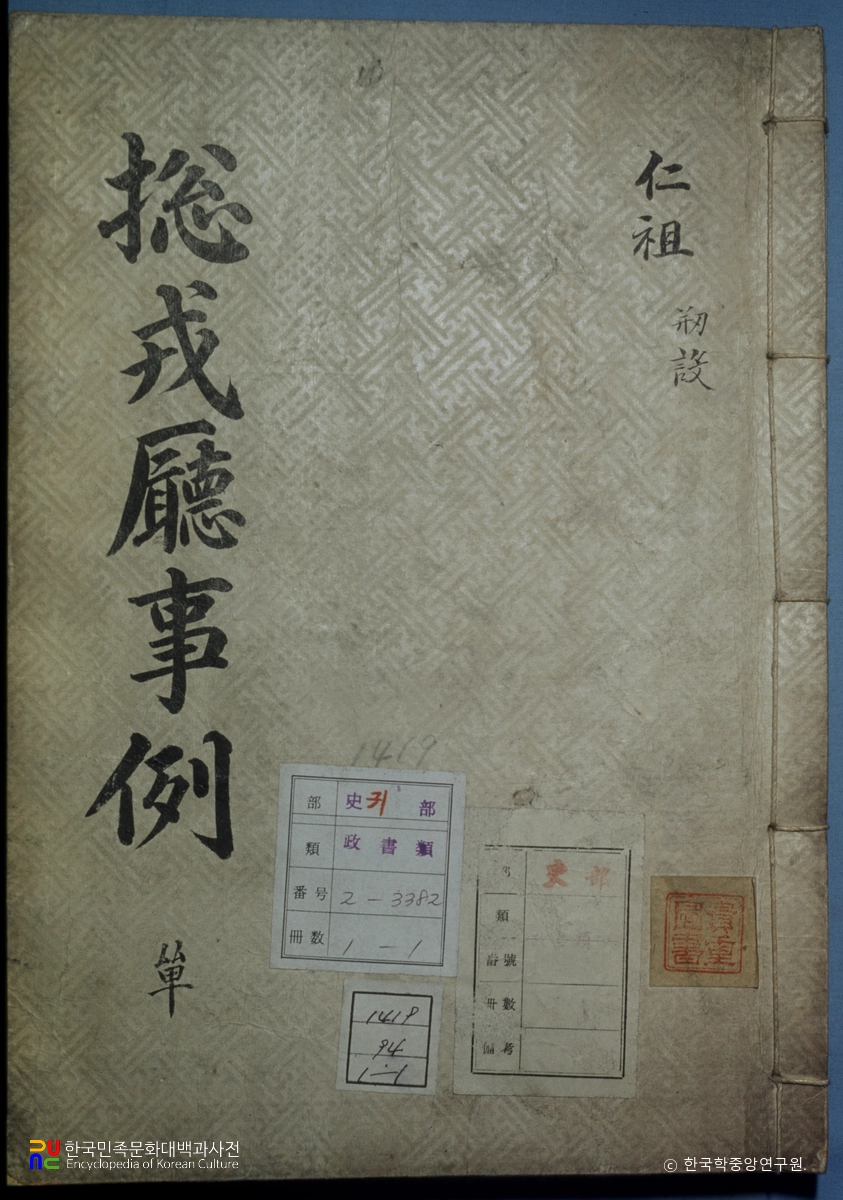 仁祖
刱設
摠戎廳事例
單
1419
部 史 귀 部
類 政書類
番号 2-3382
冊数 1-1
史部
類
番號
冊數
備考
1419
94
1-1
藏書
한국민족문화대백과사전
Encyclopedia of Korean Culture
© 한국학중앙연구원